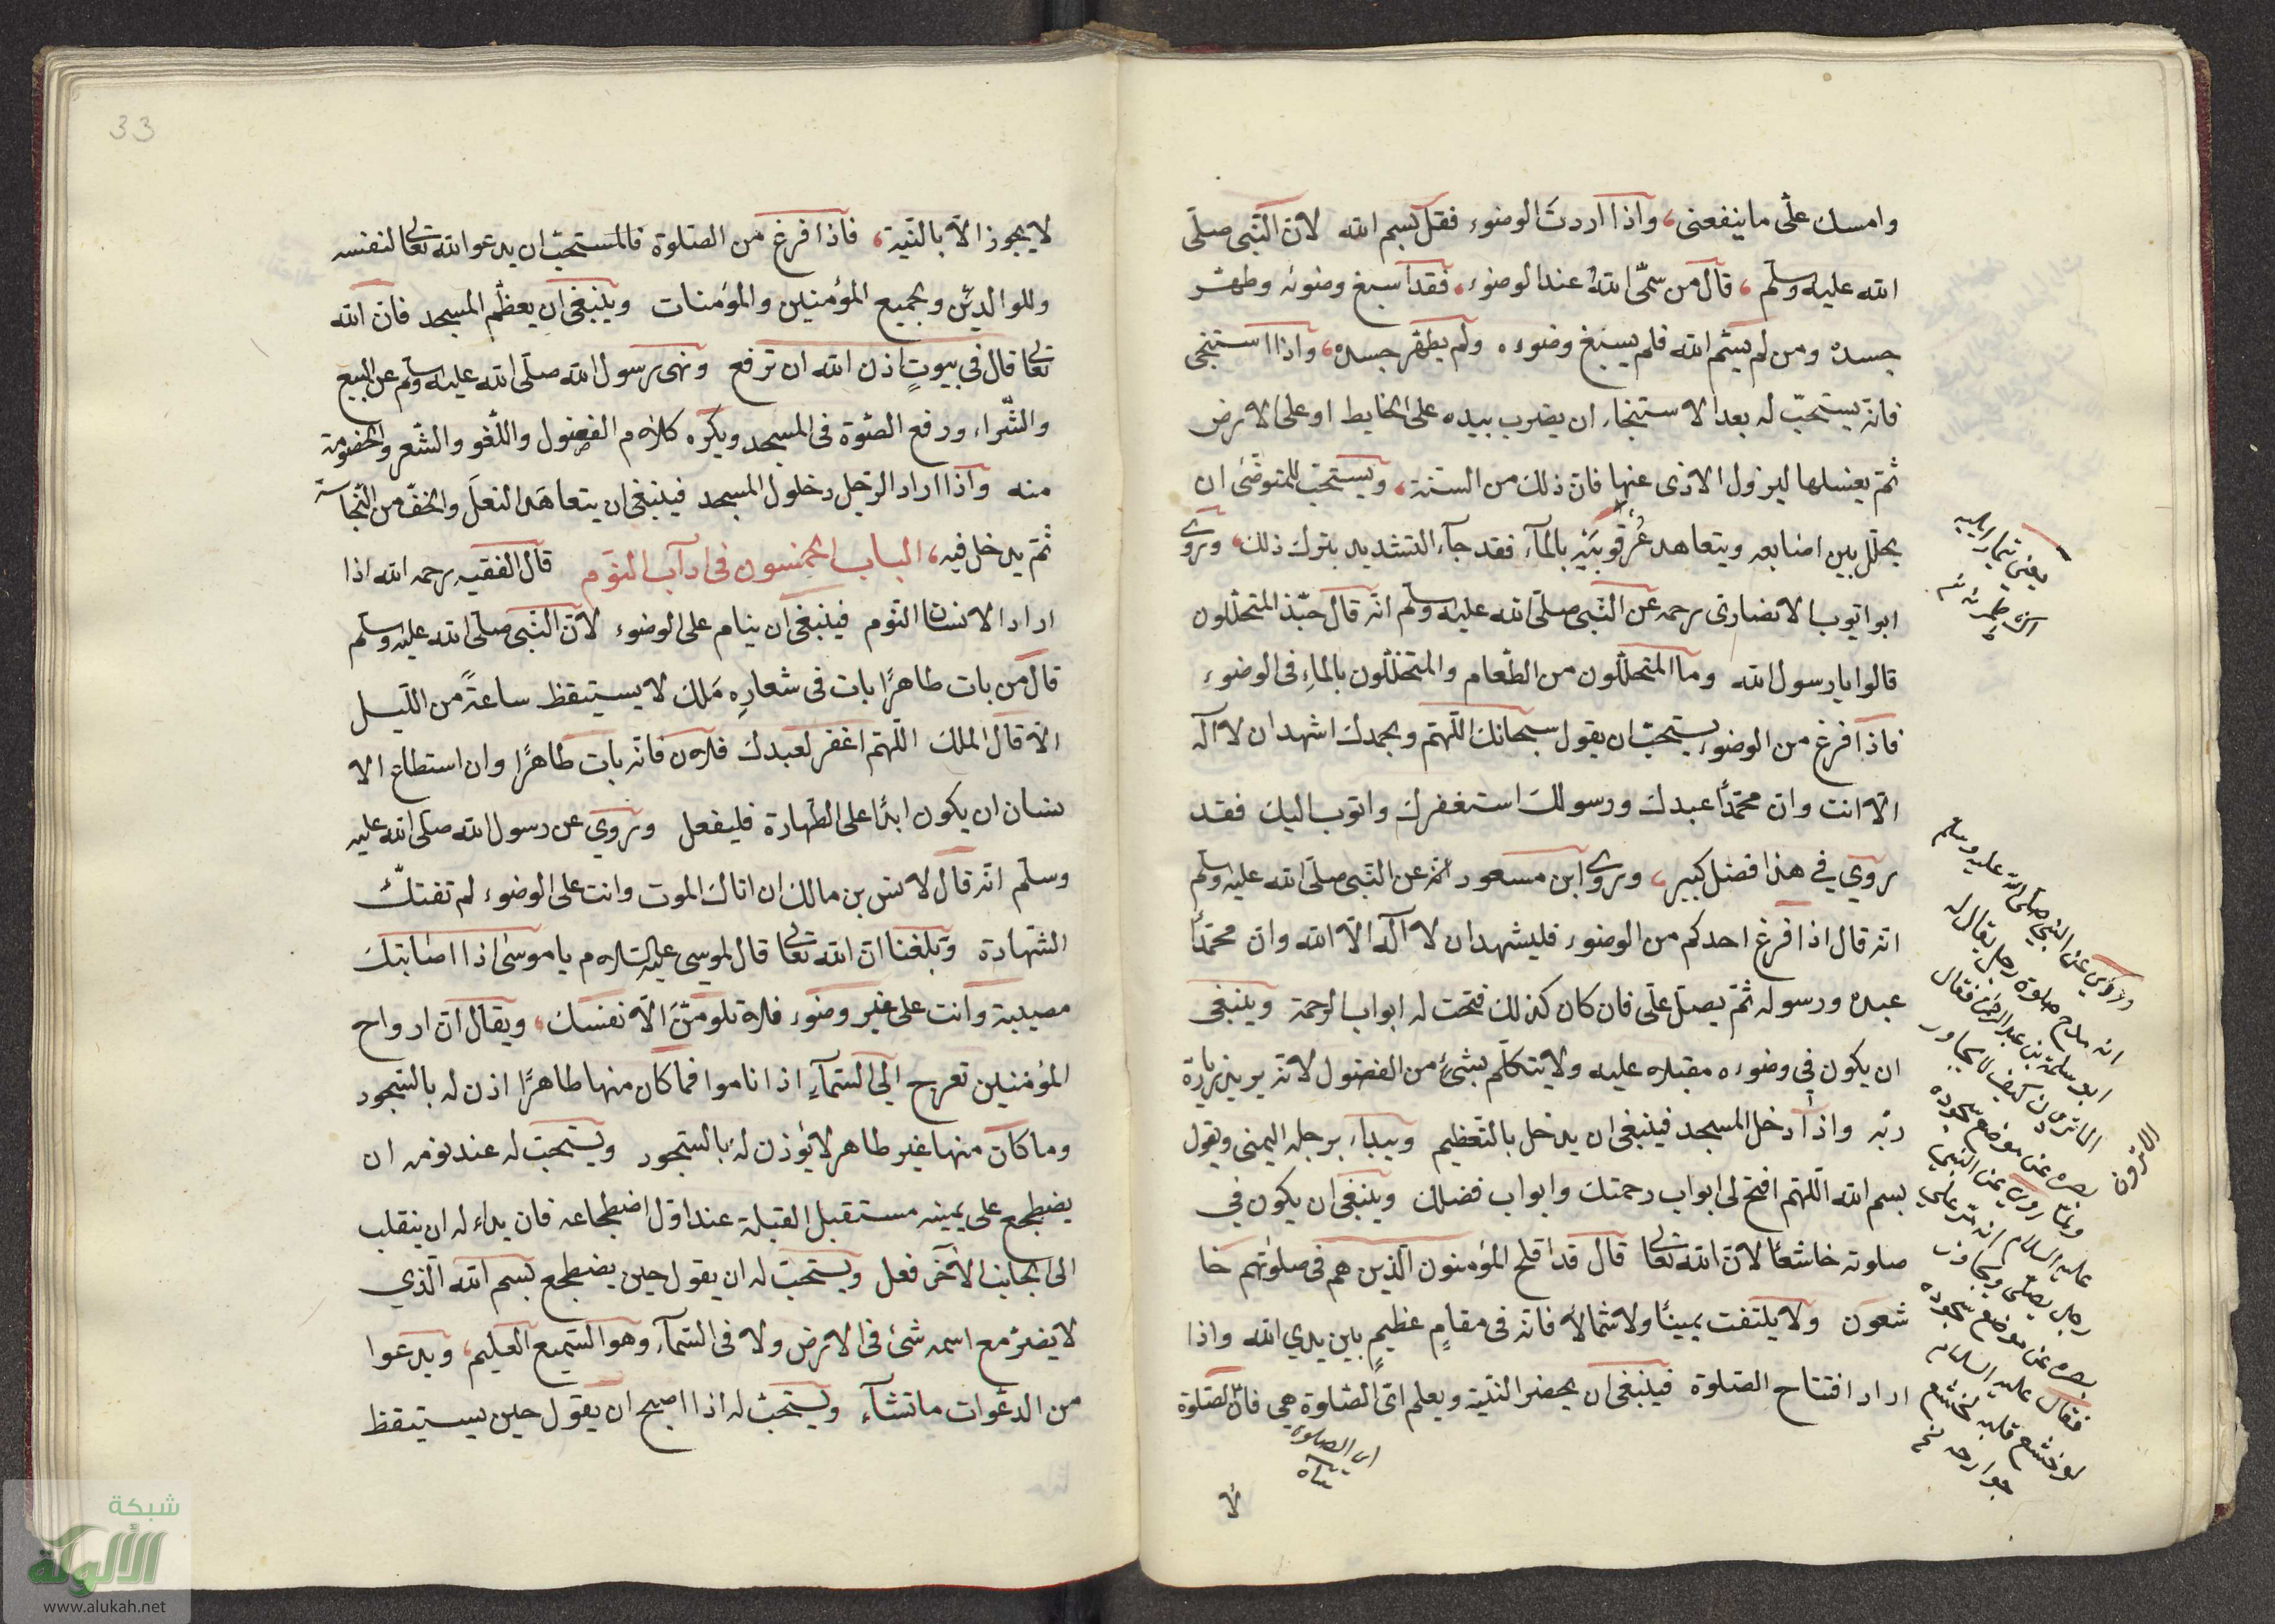 وامسك علّى ماينفعنى، وآذا اردتَ الوضوء فقل بسم الله لانّ النّبى صلّى
الله عليه وسلّم، قال من سمّى اللهَ عند الوضوء، فقد اسبغ وضوئه وطهّر
جسده ومن لم يسّم الله فلم يسبغ وضوءه ولم يطهّر جسده، واذا استنجى
فانّه يستحبّ له بعد الاستنجاء ان يضرب بيده على الحايط او على الارض
ثمّ يغسلها ليزول الاذى عنها فانّ ذلك من السنّة، ويستحبّ للمتوضّى ان
يخلّل بين اصابعه ويتعاهد عُرقوبَيْه بالمآء فقد جآء التشديد بترك ذلك، وروى
ابو ايّوب الانصارى رحمه عن النّبى صلّى الله عليه وسلّم انّه قال حبّذ المتخلّلون
قالوا يا رسول الله وما المتخلّلون من الطّعام والمتخلّلون بالماءِ فى الوضوء
فاذا فرغ من الوضوء يستحبّ ان يقول سبحانك اللّهمّ وبحمدك اشهد ان لا آله
الّا انت وانّ محمّداً عبدك ورسولك استغفرك واتوب اليك فقد
روي في هذا فضل كبير، وروى ابن مسعود انّه عن النّبى صلّى الله عليه وسلّم
انّه قال اذا فرغ احدكم من الوضوء فليشهد ان لا آله الّا الله وانّ محمّداً
عبده ورسوله ثمّ يصلّ علّى فان كان كذلك فتحت له ابواب الرحمة وينبغى
ان يكون في وضوءه مقبلا عليه ولا يتكلّم بشئ من الفضول لانّه يريد زيارة
ربّه واذا دخل المسجد فينبغى ان يدخل بالتعظيم ويبداء برجله اليمنى ويقول
بسم الله اللّهمّ افتح لى ابواب رحمتك وابواب فضلك وينبغى ان يكون في
صلوته خاشعاً لانّ الله تعالى قال قد افلح المؤمنون الّذين هم فى صلوتهم خا
شعون ولا يلتفت يميناً ولا شمالا فانّه فى مقامٍ عظيمٍ بين يدي الله واذا
اراد افتتاح الصّلوة فينبغى ان يحضر النّيّة ويعلم ايّ الصّلوة هى فانّ الصّلوة
اى الصلوة
لا
وروى عن النبي صلّى الله عليه وسلم
رجل يقال له
ابو سلمة بن عبد الرحمن فقال
الا ترون كيف لا يجاوز
بصره عن موضع سجوده
روى عن النبي
عليه السلام
رجل يصلّى ويجاوز
بصره عن موضع سجوده
فقال عليه السلام
لو خشع قلبه لخشع
جوارحه
الا ترون
33
لا يجوز الّا بالنّية، فاذا فرغ من الصّلوة فالمستحبّ ان يدعو الله تعالى لنفسه
وللوالديْن وبجميع المؤمنين والمؤمنات وينبغى ان يعظّم المسجد فانّ الله
تعالى قال فى بيوتٍ اذن الله ان ترفع ونهى رسول الله صلّى الله عليه وسلّم عن البيع
والشّراء ورفع الصّوة فى المسجد ويكره كلام الفضول واللّغو والشّعر والخصومة
منه وآذا اراد الرّجل دخول المسجد فينبغى ان يتعاهَد النعلَ والخفّ من النّجاسة
ثمّ يدخل فيه، الباب الخمسون فى ادآب النّوم قال الفقيه رحمه الله اذا
اراد الانسان النّوم فينبغى ان ينام على الوضوء لانّ النّبى صلّى الله عليه وسلّم
قال من بات طاهرًا بات فى شعارِهِ مَلك لا يستيقظ ساعةً من اللّيل
الّا قال الملك اللّهمّ اغفر لعبدك فلان فانّه بات طاهرًا وان استطاع الا
نسان ان يكون ابدًا على الطّهارة فليفعل وروي عن رسول الله صلّى الله عليه
وسلّم انّه قال لانس بن مالك ان اتاك الموت وانت على الوضوء لم تفتك
الشّهادة وبلغنا انّ الله تعالى قال لموسى عليه السّلام يا موسى اذا اصابتك
مصيبة وانت على غير وضوء فلا تلومنّ الّا نفسك، ويقال انّ ارواح
المؤمنين تعرج الى السّمآءِ اذا ناموا فما كان منها طاهرًا اذن له بالسّجود
وما كان منها غير طاهر لا يُؤذن لهُ بالسّجود ويستحبّ له عند نومه ان
يضطجع على يمينه مستقبل القبلة عند اوّل اضطجاعه فان بداء له ان ينقلب
الى الجانب الاخر فعل ويستحبّ له ان يقول حين يضطجع بسم الله الّذي
لا يضرّ مع اسمه شئ فى الارض ولا فى السّمآء وهو السّميع العليم، ويدعوا
من الدعّوات ما تشآء ويستحبّ له اذا اصبح ان يقول حين يستيقظ
شبكة
الألوكة
www.alukah.net